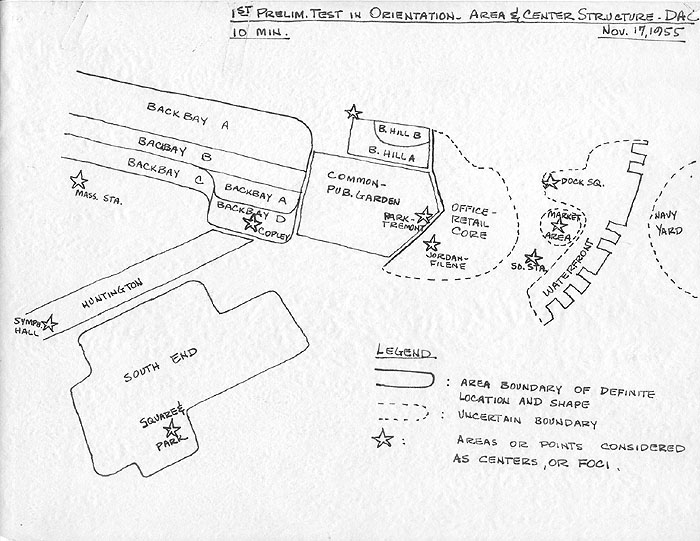 1ST PRELIM. TEST IN ORIENTATION - AREA & CENTER STRUCTURE - DAC
10 MIN.
NOV. 17, 1955
BACKBAY A
BACKBAY B
BACKBAY C
BACKBAY A
BACKBAY D
COPLEY
MASS. STA.
B. HILL B
B. HILL A
COMMON-
PUB. GARDEN
PARK-
TREMONT
JORDAN-
FILENE
OFFICE-
RETAIL
CORE
DOCK SQ.
MARKET
AREA
SO. STA.
WATERFRONT
NAVY
YARD
HUNTINGTON
SYMPH.
HALL
SOUTH END
SQUARE &
PARK
LEGEND
: AREA BOUNDARY OF DEFINITE
LOCATION AND SHAPE
: UNCERTAIN BOUNDARY
: AREAS OR POINTS CONSIDERED
AS CENTERS, OR FOCI.